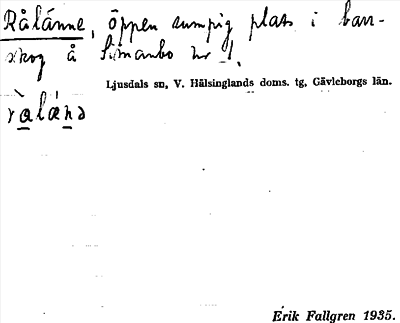 Rålánne, öppen sumpig plats i barr-
skog å Simanbo nr 1.
Ljusdals sn, V. Hälsinglands doms. tg, Gävleborgs län.
ràlǽnə
Erik Fallgren 1935.